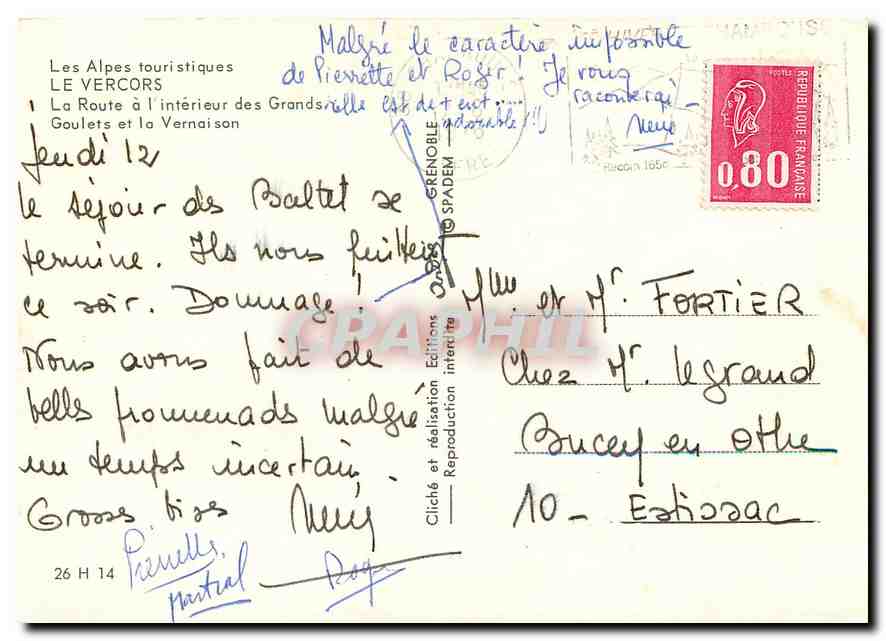 Les Alpes touristiques
LE VERCORS
La Route à l'intérieur des Grands
Goulets et la Vernaison
Malgré le caractère impossible
de Pierrette et Roger! Je vous
raconterai
elle est
adorable!!)
Jeudi 12
le séjour des Baltet se
termine. Ils nous quittent
ce soir. Dommage!
Nous avons fait de
belles promenades malgré
un temps incertain.
Grosses bises
Pierrette
Martial
Roger
26 H 14
Cliché et réalisation Editions André GRENOBLE
Reproduction interdite © SPADEM
POSTES
REPUBLIQUE FRANÇAISE
0,80
Recoin 1650
Mme et Mr. FORTIER
Chez Mr. Legrand
Bucey en Othe
10 - Estissac
CPAPHIL